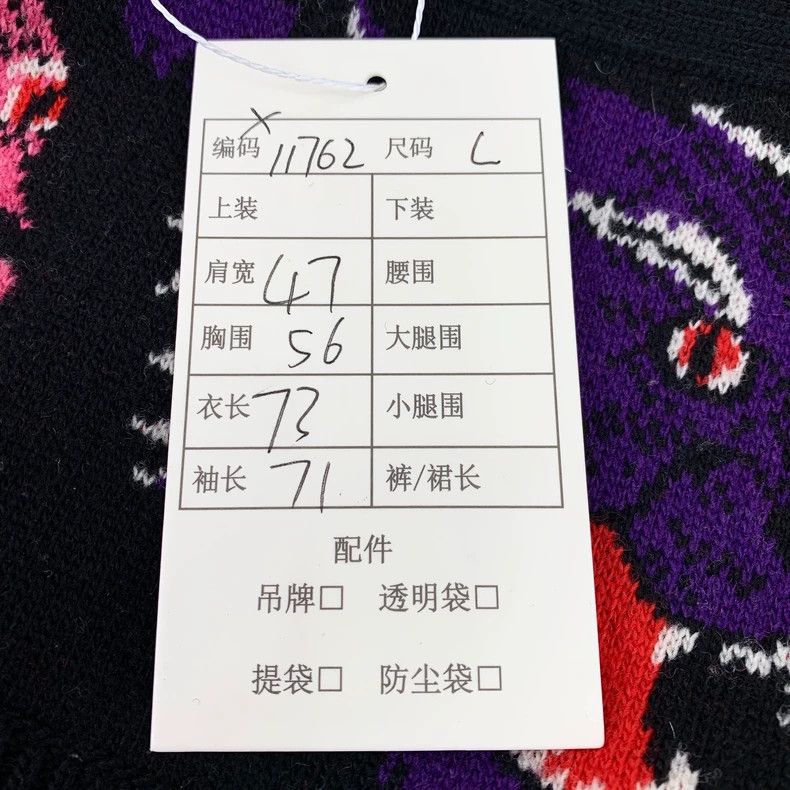 编码 X11762 尺码 L
上装 下装
肩宽 47 腰围
胸围 56 大腿围
衣长 73 小腿围
袖长 71 裤/裙长
配件
吊牌□ 透明袋□
提袋□ 防尘袋□